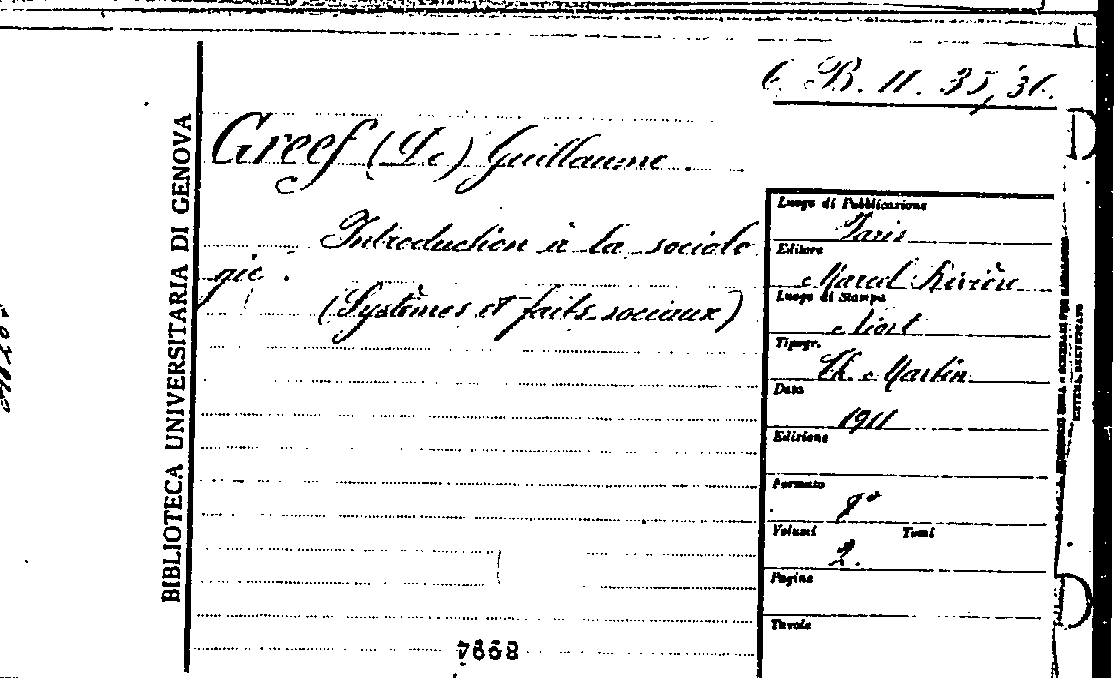 6. B. II. 35, 36.
Greef (De) Guillaume.
Introduction à la sociolo
gie.
(Systèmes et faits sociaux)
BIBLIOTECA UNIVERSITARIA DI GENOVA
Luogo di Pubblicazione
Paris
Editore
Marcel Rivière
Luogo di Stampa
Niort
Tipogr.
Th. Martin
Data
1911
Edizione
Formato
8°
Volumi Tomi
2.
Pagine
Tavole